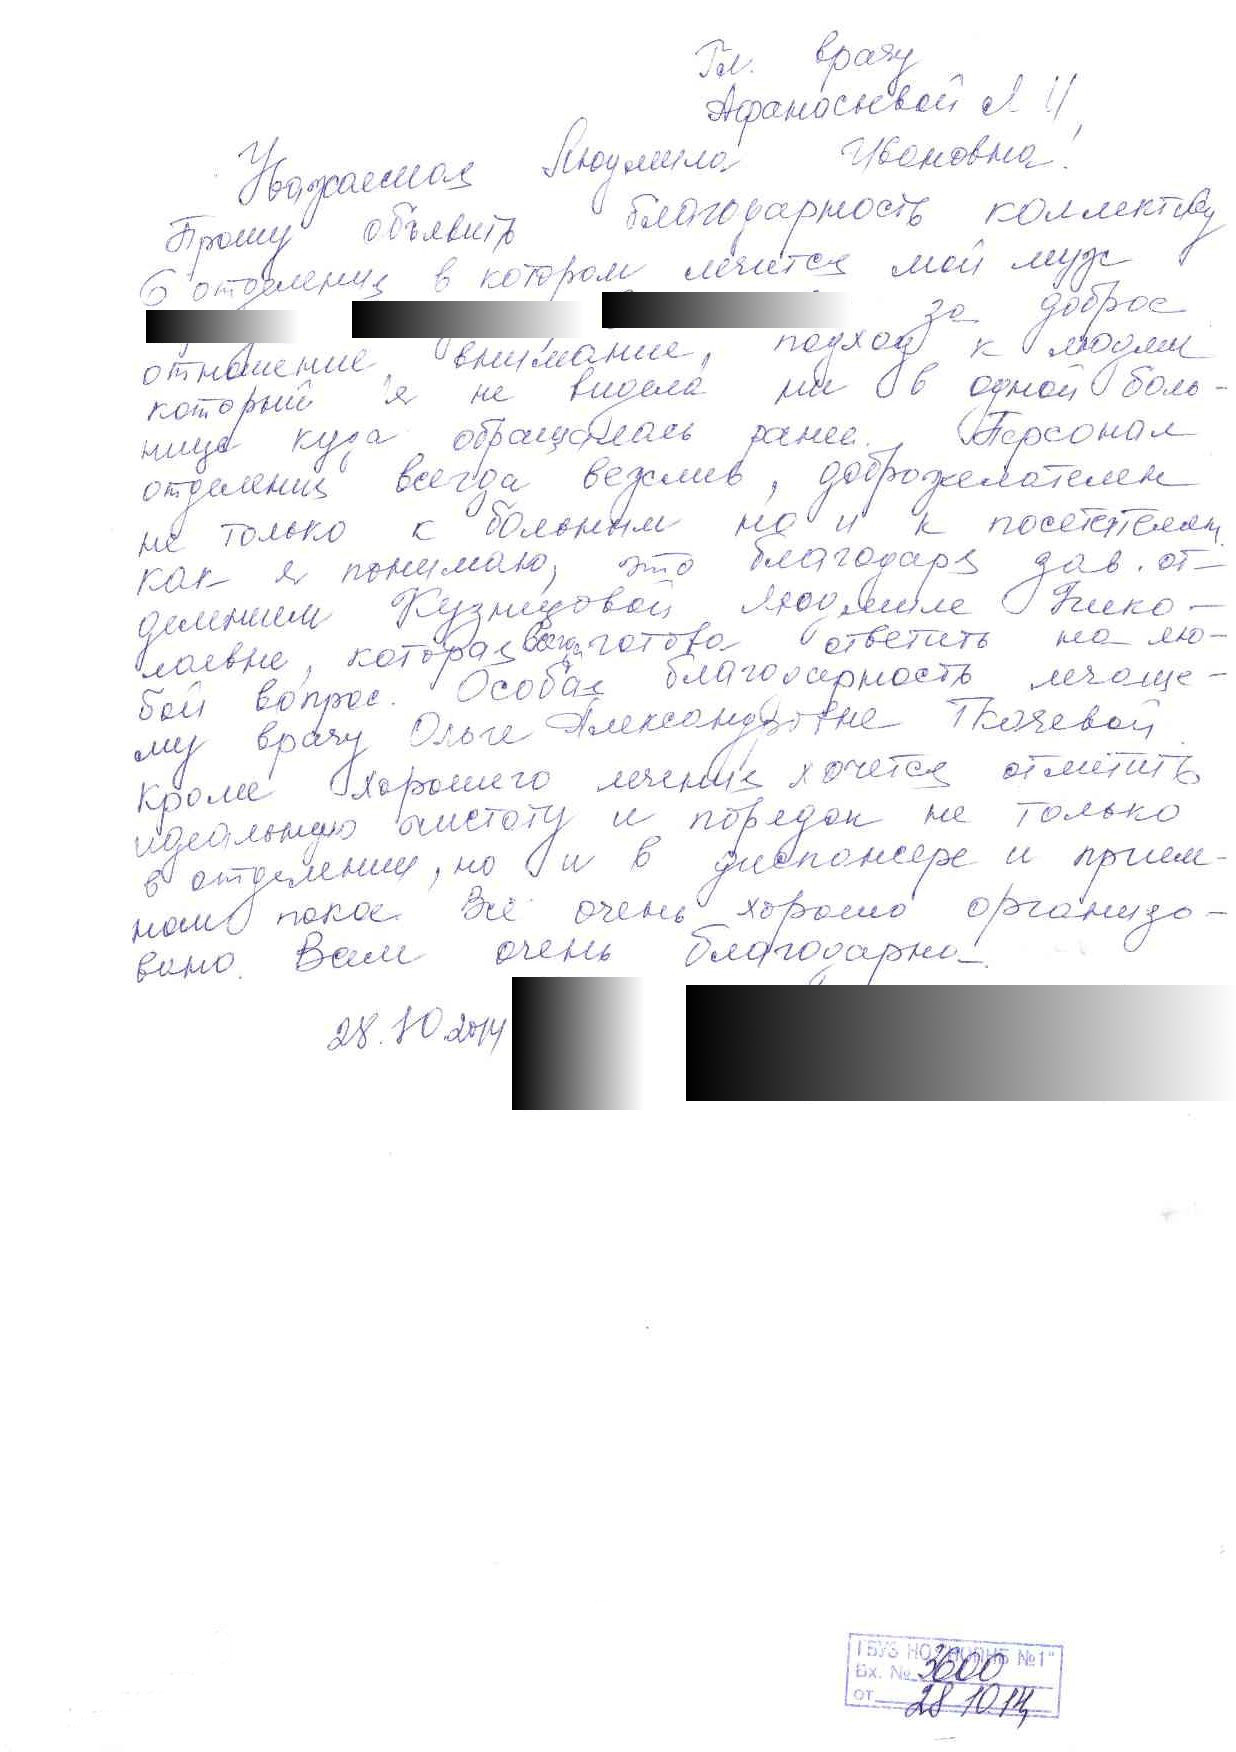 Гл. врачу
Афанасьевой Л И,
Уважаемая Людмила Ивановна!
Прошу объявить благодарность коллективу
6 отделения в котором лечится мой муж
за доброе
отношение, внимание, подход к людям
который я не видела ни в одной боль-
нице куда обращалась ранее. Персонал
отделения всегда вежлив, доброжелателен
не только к больным но и к посетителям
как я понимаю, это благодаря зав. от-
делением Кузнецовой Людмиле Нико-
лаевне, которая всегда готова ответить на лю-
бой вопрос. Особая благодарность лечаще-
му врачу Ольге Александровне Ткачевой.
Кроме хорошего лечения хочется отметить
идеальную чистоту и порядок не только
в отделении, но и в диспансере и прием-
ном покое. Все очень хорошо организо-
вано. Вам очень благодарна.
28.10.2014
ГБУЗ НСО №1"
Вх. № 3600
от 28 10 14